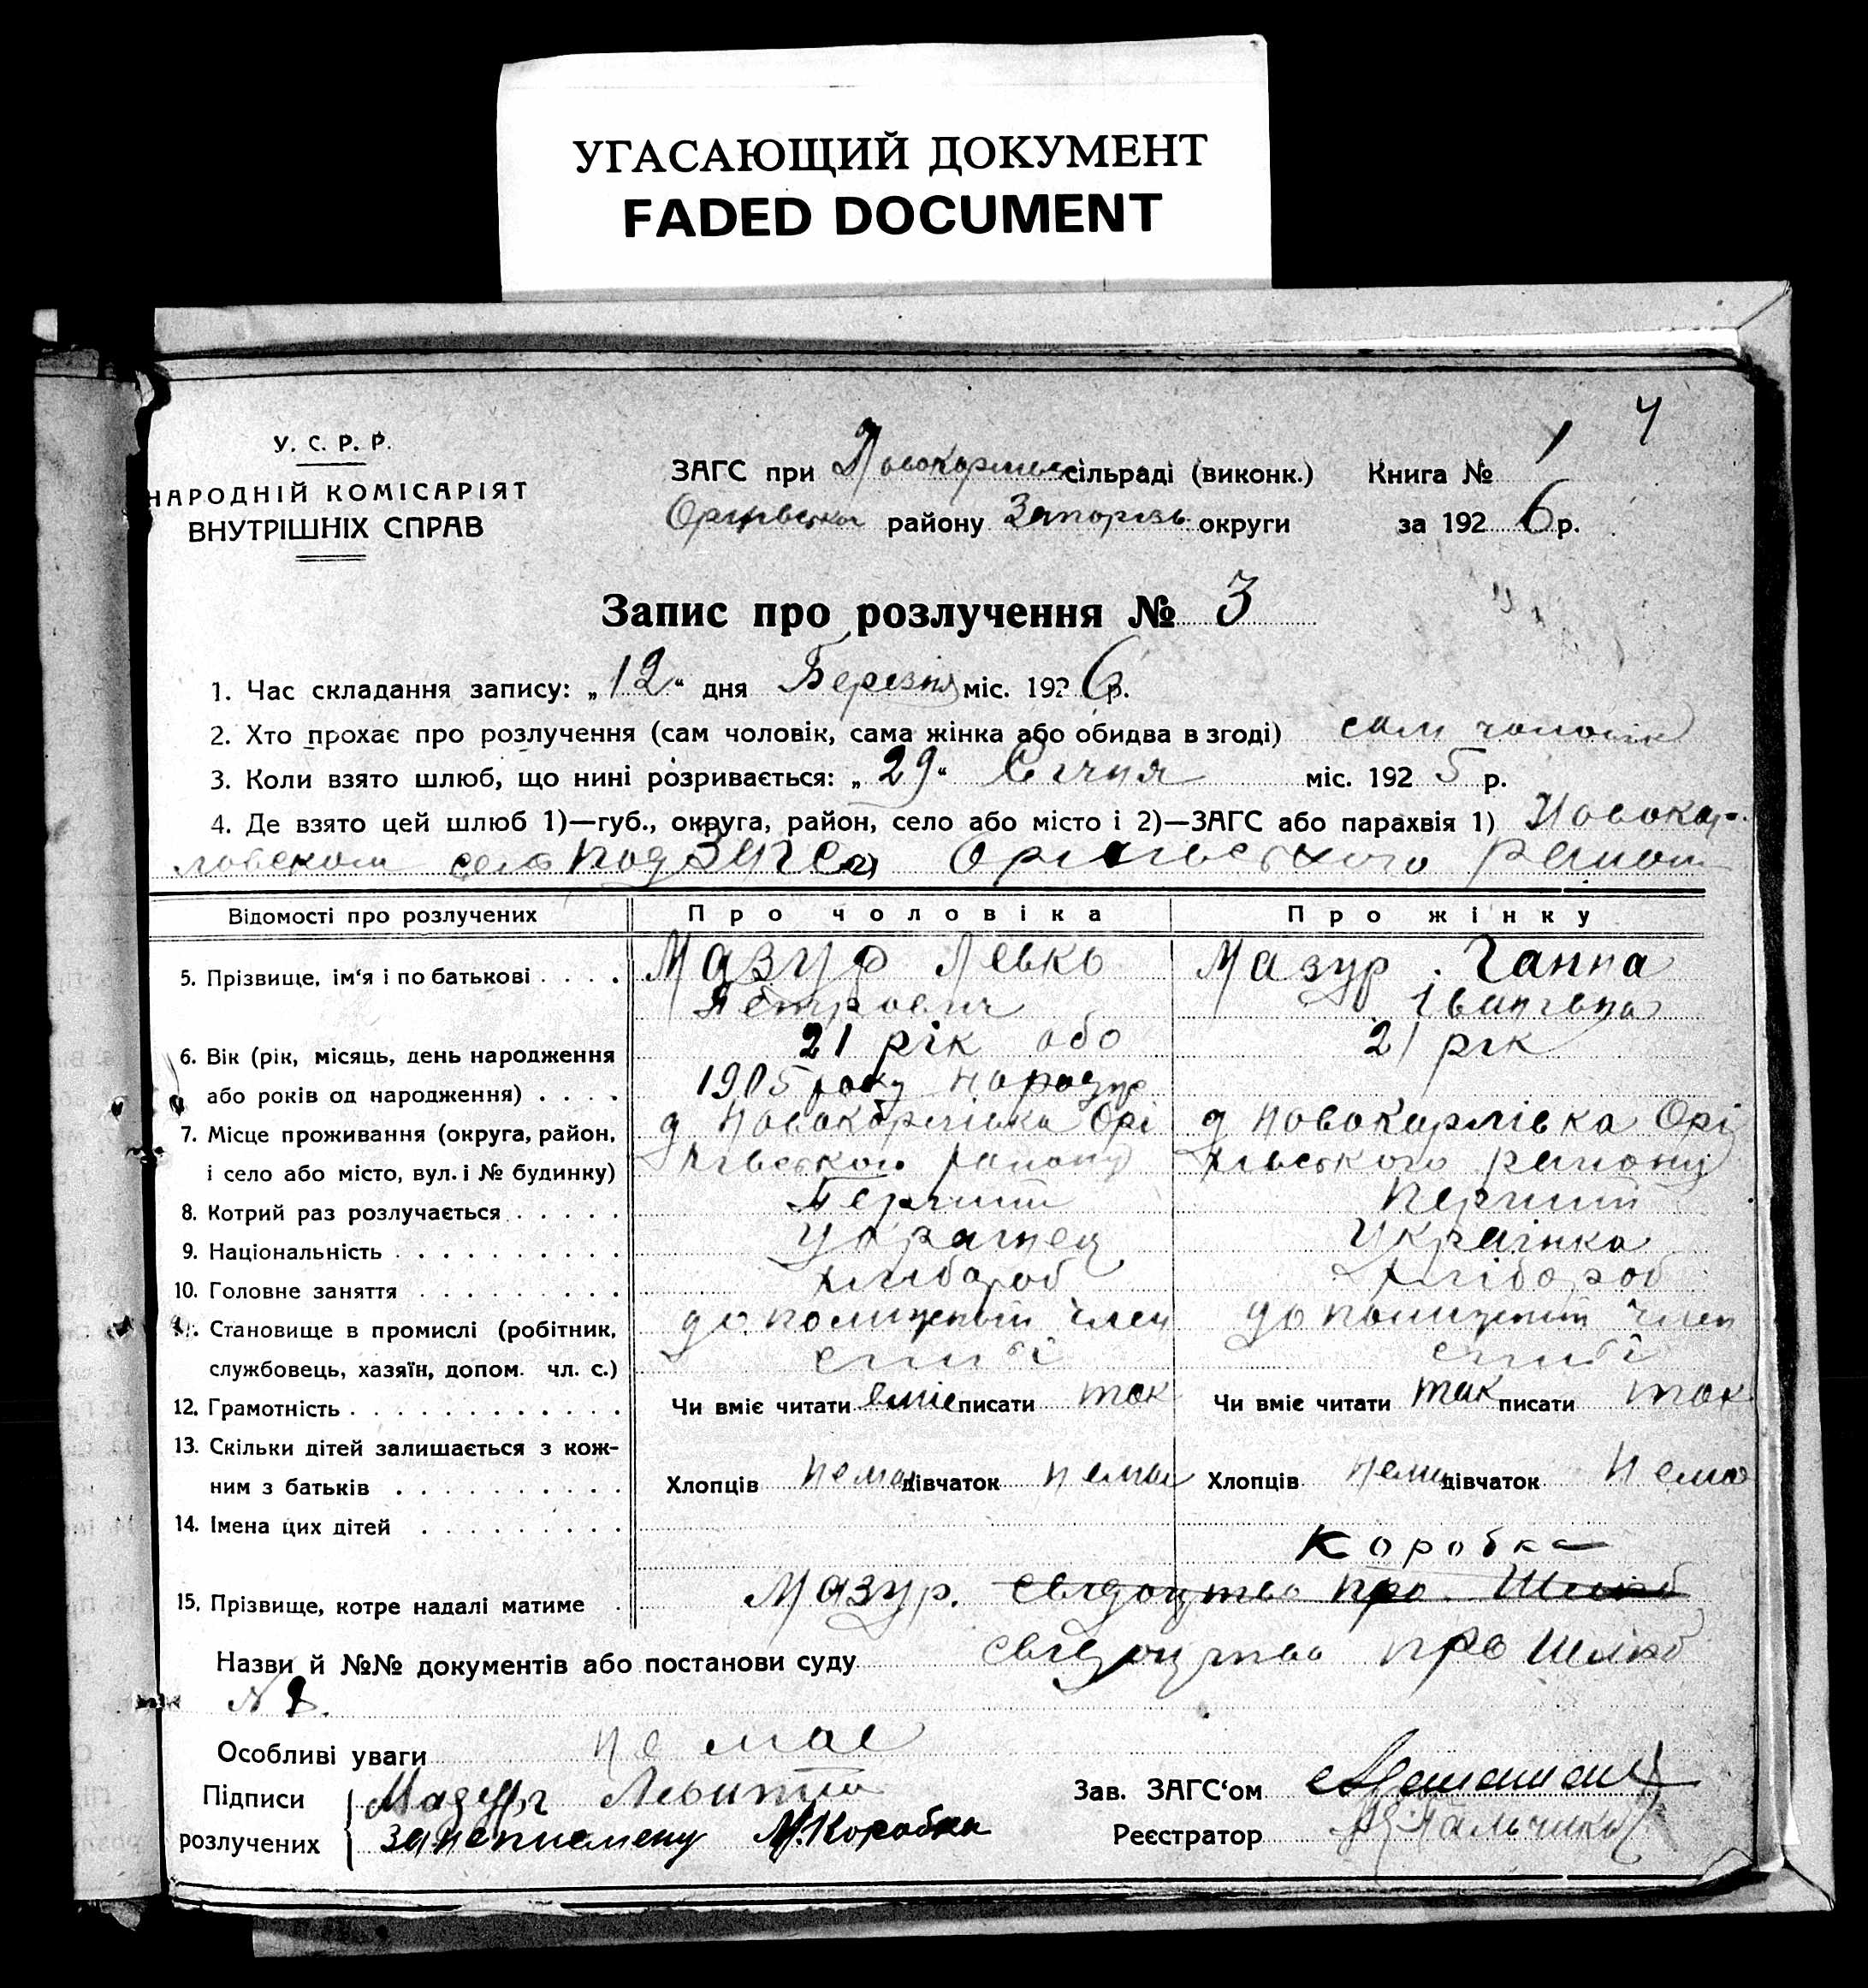 УГАСАЮЩИЙ ДОКУМЕНТ
FADED DOCUMENT
4
У. С. Р. Р.
НАРОДНІЙ КОМІСАРІЯТ
ВНУТРІШНІХ СПРАВ
ЗАГС при сільраді (виконк.) Книга № 1
району Запорізь округи за 1926 р.
Запис про розлучення № 3
1. Час складання запису: „12“ дня Березня міс. 1926 р.
2. Хто прохає про розлучення (сам чоловік, сама жінка або обидва в згоді) сам чоловік
3. Коли взято шлюб, що нині розривається: „29“ Січня міс. 1925 р.
4. Де взято цей шлюб 1)—губ., округа, район, село або місто і 2)—ЗАГС або парахвія 1) Новокар-
ловском село подЗагса району
Відомості про розлучених Про чоловіка Про жінку
5. Прізвище, ім‘я і по батькові . . . . Мазур Левко Мазур Ганна
Петрович Івановна
6. Вік (рік, місяць, день народження 21 рік або 21 рік
або років од народження) . . . . 1905 року народж
7. Місце проживання (округа, район, д Новокарлівка Орі д Новокарлівка Орі
і село або місто, вул. і № будинку) хівського району хівського району
8. Котрий раз розлучається . . . . . Перший Перший
9. Національність . . . . . . . . . . Українец Українка
10. Головне заняття . . . . . . . . . хлібороб хлібороб
11. Становище в промислі (робітник, член член
службовець, хазяїн, допом. чл. с.) сем'ї сем'ї
12. Грамотність . . . . . . . . . . . . Чи вміє читати вміє писати так Чи вміє читати так писати так
13. Скільки дітей залишається з кож-
ним з батьків . . . . . . . . . . Хлопців нема дівчаток нема Хлопців нема дівчаток нема
14. Імена цих дітей . . . . . . . . .
Коробка
15. Прізвище, котре надалі матиме . Мазур. свідоцтво про Шлюб
Назви й №№ документів або постанови суду свідоцтво про Шлюб
№ 2.
Особливі уваги не має
Підписи Мазур Зав. ЗАГС‘ом
розлучених М. Коробка Реєстратор